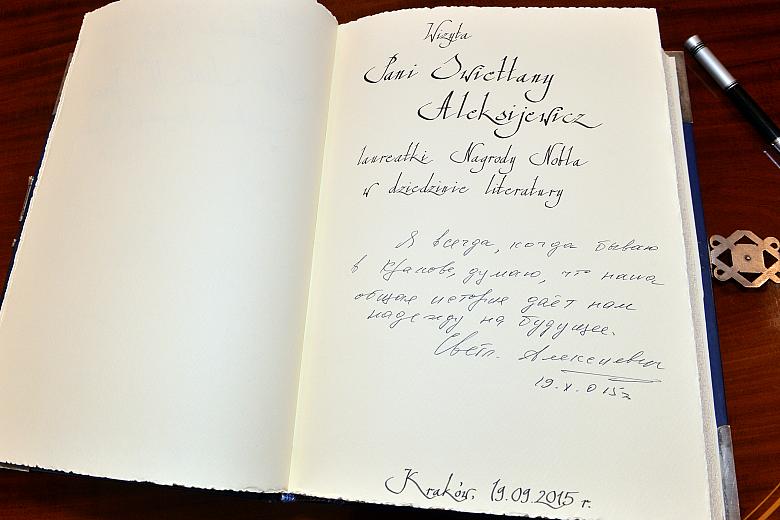 Wizyta
Pani Swietłany
Aleksijewicz
laureatki Nagrody Nobla
w dziedzinie literatury
Я всегда, когда бываю
в Кракове, думаю, что наша
общая история даёт нам
надежду на будущее.
Светл. Алексиевич
19.X.015г
Kraków, 19.09.2015 r.